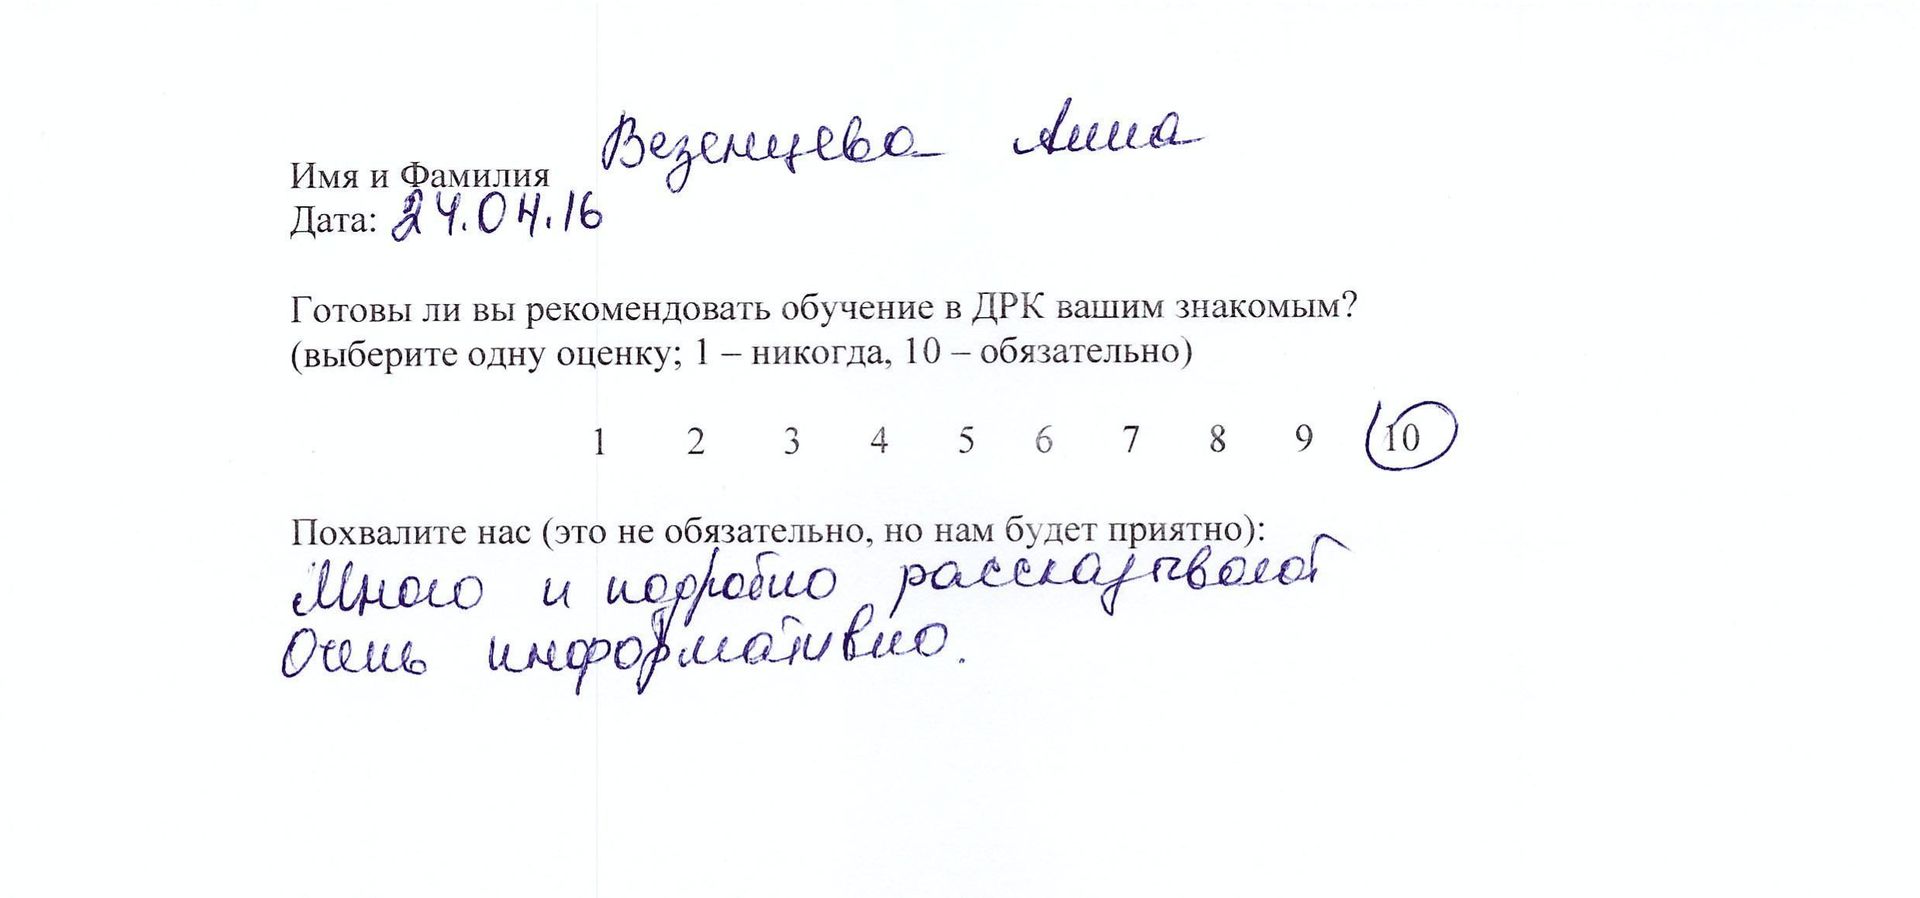 Везенцева Анна
Имя и Фамилия
Дата: 24.04.16
Готовы ли вы рекомендовать обучение в ДРК вашим знакомым?
(выберите одну оценку; 1 – никогда, 10 – обязательно)
1 2 3 4 5 6 7 8 9 10
Похвалите нас (это не обязательно, но нам будет приятно):
Много и подробно рассказывают
Очень информативно.